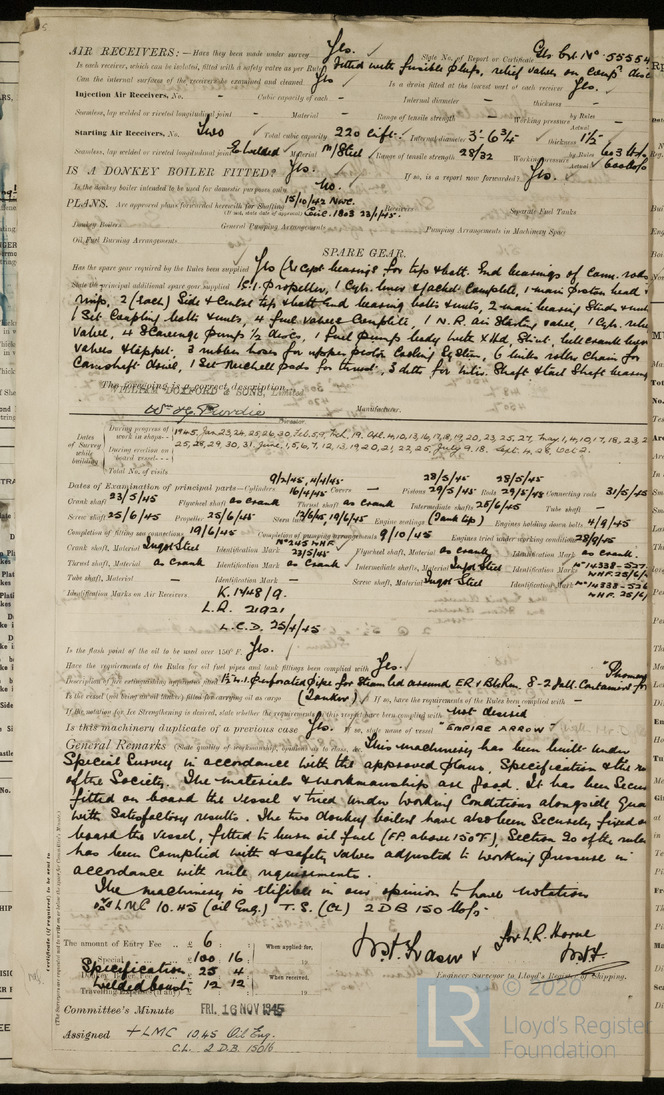 AIR RECEIVERS:— Have they been made under survey Yes. State No. of Report or Certificate Gls Cert No. 55554
Is each receiver, which can be isolated, fitted with a safety valve as per Rule fitted with fusible plugs, relief valves on comp. disc
Can the internal surfaces of the receivers be examined and cleaned Yes Is a drain fitted at the lowest part of each receiver Yes.
Injection Air Receivers, No. – Cubic capacity of each – Internal diameter – thickness –
Seamless, lap welded or riveted longitudinal joint – Material – Range of tensile strength Working pressure by Rules Actual
Starting Air Receivers, No. Two Total cubic capacity 220 c. ft. Internal diameter 3'-6¾" thickness 1½"
Seamless, lap welded or riveted longitudinal joint E. welded Material M/Steel Range of tensile strength 28/32 Working pressure by Rules 603 Actual 600
IS A DONKEY BOILER FITTED? Yes. If so, is a report now forwarded? Yes.
Is the donkey boiler intended to be used for domestic purposes only No.
PLANS. Are approved plans forwarded herewith for Shafting 15/10/42 Nwc. Receivers Separate Fuel Tanks
(If not, state date of approval) Circ. 1803 23/1/45.
Donkey Boilers General Pumping Arrangements Pumping Arrangements in Machinery Space
Oil Fuel Burning Arrangements
SPARE GEAR.
Has the spare gear required by the Rules been supplied Yes (Except bearings for top & bott. End bearings of conn. rods
State the principal additional spare gear supplied 1 C.I. Propeller, 1 Cyl. liner & jacket Complete, 1 main piston head &
rings, 2 (each) Side & Central top & bott End bearing bolts & nuts, 2 main bearing Studs & nuts
1 Set Coupling bolts & nuts, 4 fuel valves Complete, 1 N.R. air Starting valve, 1 Cyl. relief
valve, 4 Scavenge Pump ½ discs, 1 fuel Pump body with
valves & tappet. 3 rubber hoses for upper piston Cooling System, 6 links roller chain for
Camshaft drive, 1 Set Michell pads for thrust, 3 ditto for inter. Shaft & tail Shaft bearing
The foregoing is a correct description,
WILLIAM DOXFORD & SONS, Limited
Wm G. Purdie Manufacturer.
Dates of Survey while building
During progress of work in shops - - 1945. Jan 23, 24, 25, 26, 30, Feb. 5, 9, Mch. 19. Apl. 4, 10, 13, 16, 17, 18, 19, 20, 23, 25, 27, May 1, 4, 10, 17, 18, 23, 2
During erection on board vessel - - - 25, 28, 29, 30, 31, June. 1, 5, 6, 7, 12, 13, 19, 20, 21, 22, 25, July 9, 18. Sept. 4, 28, Oct 2.
Total No. of visits
Dates of Examination of principal parts—Cylinders 9/2/45, 4/4/45 16/4/45 Covers – Pistons 28/5/45 29/5/45 Rods 28/5/45 29/5/45 Connecting rods 31/5/45
Crank shaft 23/5/45 Flywheel shaft as crank Thrust shaft as crank Intermediate shafts 25/6/45 Tube shaft –
Screw shaft 25/6/45 Propeller 25/6/45 Stern tube 12/6/45, 19/6/45 Engine seatings (Tank top) Engines holding down bolts 4/9/45
Completion of fitting sea connections 19/6/45 Completion of pumping arrangements 9/10/45 Engines tried under working conditions 28/9/45
Crank shaft, Material Ingot Steel Identification Mark No 245 WHF 23/5/45 Flywheel shaft, Material as crank Identification Mark as crank.
Thrust shaft, Material as crank Identification Mark as crank Intermediate shafts, Material Ingot Steel Identification Marks No 14338-527 WHF. 25/6/
Tube shaft, Material – Identification Mark – Screw shaft, Material Ingot Steel Identification Mark No 14338-526 WHF. 25/6/
Identification Marks on Air Receivers K. 1448/9.
L.R. 21921
L.C.D. 25/4/45
Is the flash point of the oil to be used over 150° F. Yes.
Have the requirements of the Rules for oil fuel pipes and tank fittings been complied with Yes.
Description of fire extinguishing apparatus Perforated Pipe for Steam led around ER & Blr Rm. 8-2 Gall. Containers for
Is the vessel (not being an oil tanker) fitted for carrying oil as cargo (Tanker) If so, have the requirements of the Rules been complied with –
If the notation for Ice Strengthening is desired, state whether the requirements in this respect have been complied with not desired
Is this machinery duplicate of a previous case Yes. If so, state name of vessel "EMPIRE ARROW"
General Remarks (State quality of workmanship, opinions as to class, &c. This machinery has been built under
Special Survey in accordance with the approved plans, Specification & the ru
of the Society. The materials & workmanship are good. It has been Secur
fitted on board the vessel & tried under working Conditions alongside Quay
with Satisfactory results. The two donkey boilers have also been Securely fixed on
board the vessel, fitted to burn oil fuel (F.P. above 150°F), Section 20 of the rules
has been Complied with & safety valves adjusted to working pressure in
accordance with rule requirements.
The machinery is eligible in our opinion to have notation
LMC 10.45 (oil Eng.) T.S. (CL) 2 D.B 150 lbs/
The amount of Entry Fee .. £ 6 When applied for,
Special £ 100 16
Specification 25 4
Welded 12 12 When received,
Travelling Expenses (if any) £
W.H. Fraser & for L.R. Horne WHF
Engineer Surveyor to Lloyd's Register of Shipping.
Committee's Minute FRI. 16 NOV 1945
Assigned + LMC 10.45 Oil Eng.
C.L. 2 D.B. 150 lb
Certificate (if required) to be sent to
(The Surveyors are requested not to write on or below the space for Committee's Minute.)
LR © 2020
Lloyd's Register
Foundation